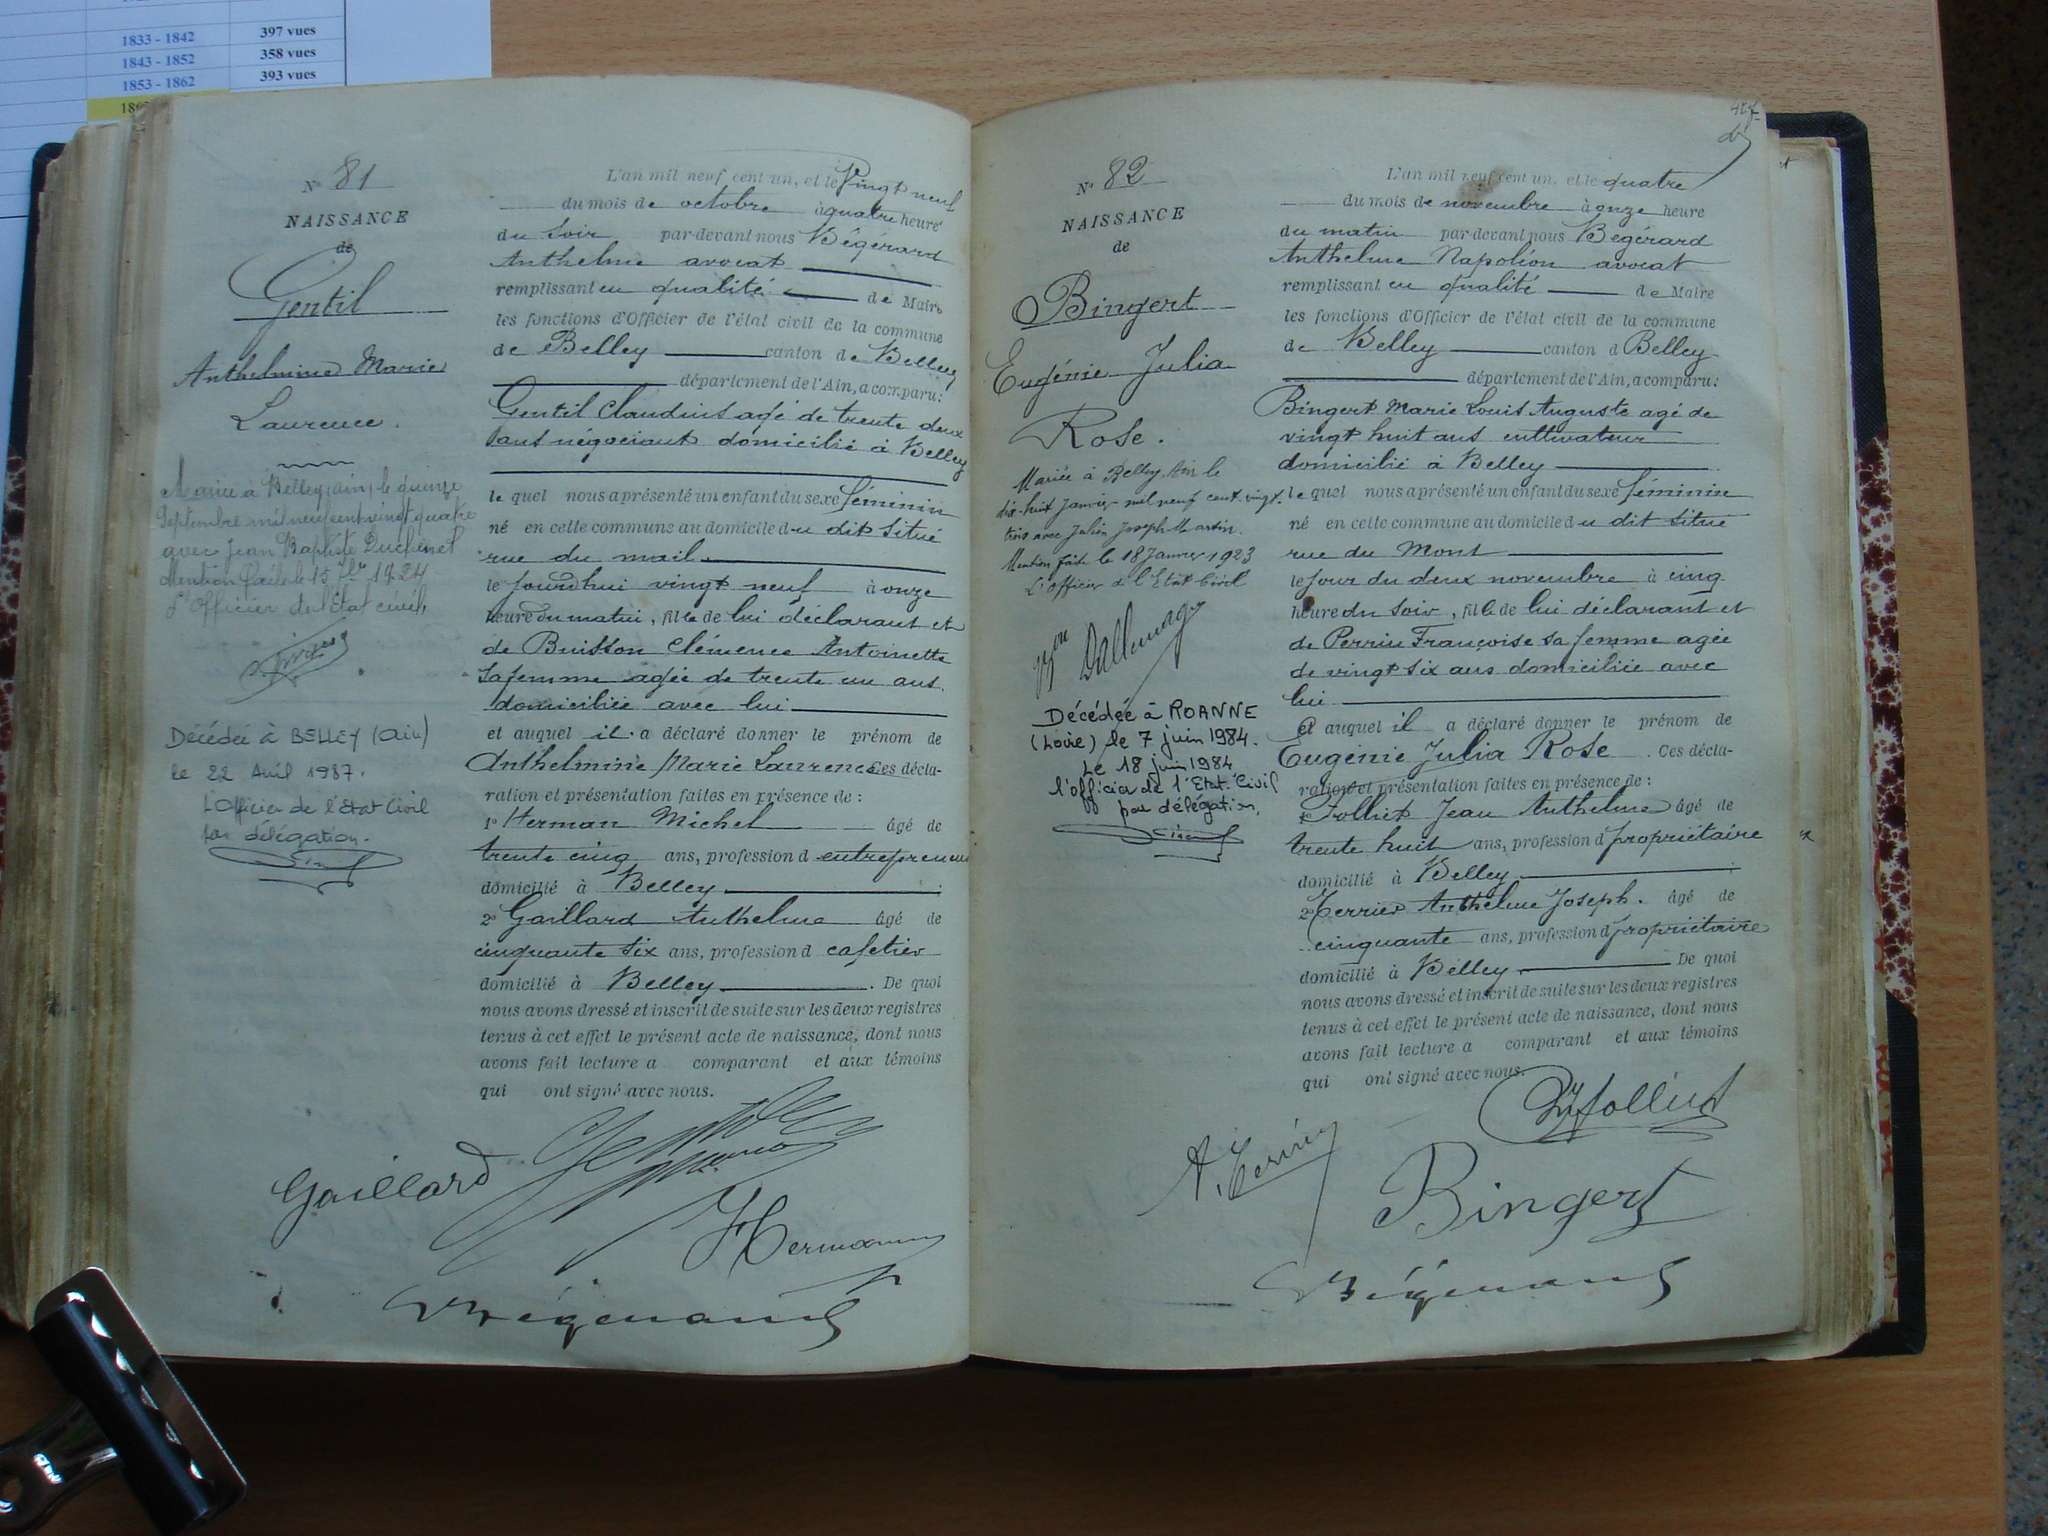 1833 - 1842 397 vues
1843 - 1852 358 vues
1853 - 1862 393 vues
N° 81
NAISSANCE
de
Gentil
Anthelmine Marie
Laurence.
Mariée à Belley (Ain) le quinze
Septembre mil neuf cent vingt quatre
avec Jean Baptiste
Mention faite le 15 1924
L'Officier de l'état civil,
Décédée à BELLEY (Ain)
le 22 Avril 1987.
L'Officier de l'Etat Civil
par délégation.
L'an mil neuf cent un, et le Vingt neuf
du mois de octobre à quatre heure
du soir par-devant nous Bégérard
Anthelme avocat
remplissant en qualité de Maire
les fonctions d'Officier de l'état civil de la commune
de Belley canton de Belley
département de l'Ain, a comparu:
Gentil Claudius agé de trente deux
ans négociant domicilié à Belley
le quel nous a présenté un enfant du sexe féminin
né en cette commune au domicile du dit situé
rue du mail
le jourd'hui vingt neuf à onze
heure du matin, fille de lui déclarant et
de Buisson Clémence Antoinette
sa femme agée de trente un ans
domiciliée avec lui
et auquel il a déclaré donner le prénom de
Anthelmine Marie Laurence Ces décla-
ration et présentation faites en présence de :
1° Herman Michel âgé de
trente cinq ans, profession d entrepreneur
domicilié à Belley
2° Gaillard Anthelme âgé de
cinquante six ans, profession d cafetier
domicilié à Belley . De quoi
nous avons dressé et inscrit de suite sur les deux registres
tenus à cet effet le présent acte de naissance, dont nous
avons fait lecture a comparant et aux témoins
qui ont signé avec nous.
Gaillard
Hermann
N° 82
NAISSANCE
de
Bingert
Eugénie Julia
Rose.
Mariée à Belley, Ain le
dix-huit Janvier mil neuf cent vingt-
trois avec Julien Joseph Martin.
Mention faite le 18 Janvier 1923
L'officier de l'Etat Civil
Décédée à ROANNE
(Loire) le 7 juin 1984.
Le 18 juin 1984
l'officier de l'Etat Civil
par délégation,
L'an mil neuf cent un, et le quatre
du mois de novembre à onze heure
du matin par-devant nous Bégérard
Anthelme Napoléon avocat
remplissant en qualité de Maire
les fonctions d'Officier de l'état civil de la commune
de Belley canton d Belley
département de l'Ain, a comparu:
Bingert Marie Louis Auguste agé de
vingt huit ans cultivateur
domicilié à Belley
le quel nous a présenté un enfant du sexe féminin
né en cette commune au domicile du dit situé
rue du Mont
le jour du deux novembre à cinq
heure du soir, fille de lui déclarant et
de Perrin Françoise sa femme agée
de vingt six ans domiciliée avec
lui
et auquel il a déclaré donner le prénom de
Eugénie Julia Rose . Ces décla-
ration et présentation faites en présence de :
1° Folliet Jean Anthelme âgé de
trente huit ans, profession d propriétaire
domicilié à Belley
2° Terrier Anthelme Joseph. âgé de
cinquante ans, profession d propriétaire
domicilié à Belley De quoi
nous avons dressé et inscrit de suite sur les deux registres
tenus à cet effet le présent acte de naissance, dont nous
avons fait lecture a comparant et aux témoins
qui ont signé avec nous.
Bingert